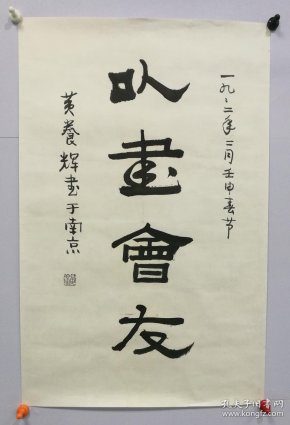 一九〻二年二月壬申春节
以畫會友
黄養辉書于南京
孔夫子旧书网
www.kongfz.com